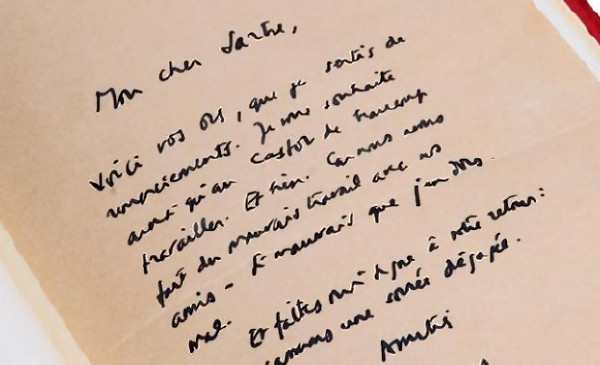 Mon cher Sartre,
Voici vos, que je sortis de
remerciements. Je vous souhaite
qu'au Castor de beaucoup
travailler. Et bien. Car nous avons
fait du mauvais travail avec nos
amis - si mauvais que j'en dors
mal.
Et faites moi signe à votre retour :
une soirée dégagée.